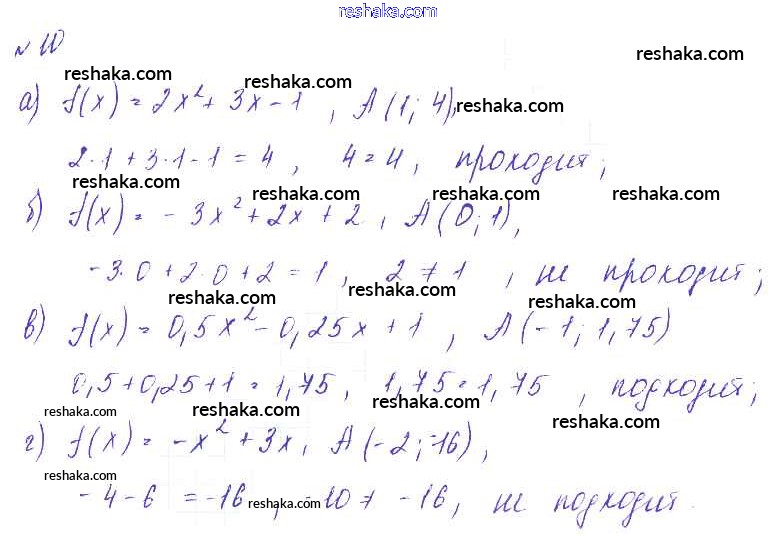 reshaka.com
№ 10
reshaka.com
reshaka.com reshaka.com
а) f(x) = 2x² + 3x - 1 , A(1; 4), reshaka.com
2·1 + 3·1 - 1 = 4 , 4 = 4 , проходит;
reshaka.com reshaka.com reshaka.com
б) f(x) = - 3x² + 2x + 2 , A(0; 1),
-3·0 + 2·0 + 2 = 1 , 2 ≠ 1 , не проходит;
reshaka.com reshaka.com reshaka.com
в) f(x) = 0,5x² - 0,25x + 1 , A(-1; 1,75)
0,5 + 0,25 + 1 = 1,75 , 1,75 = 1,75 , подходит;
reshaka.com reshaka.com reshaka.com reshaka.com
г) f(x) = -x² + 3x , A(-2; -16),
reshaka.com
-4 - 6 = -16 reshaka.com -10 ≠ -16 , не подходит.